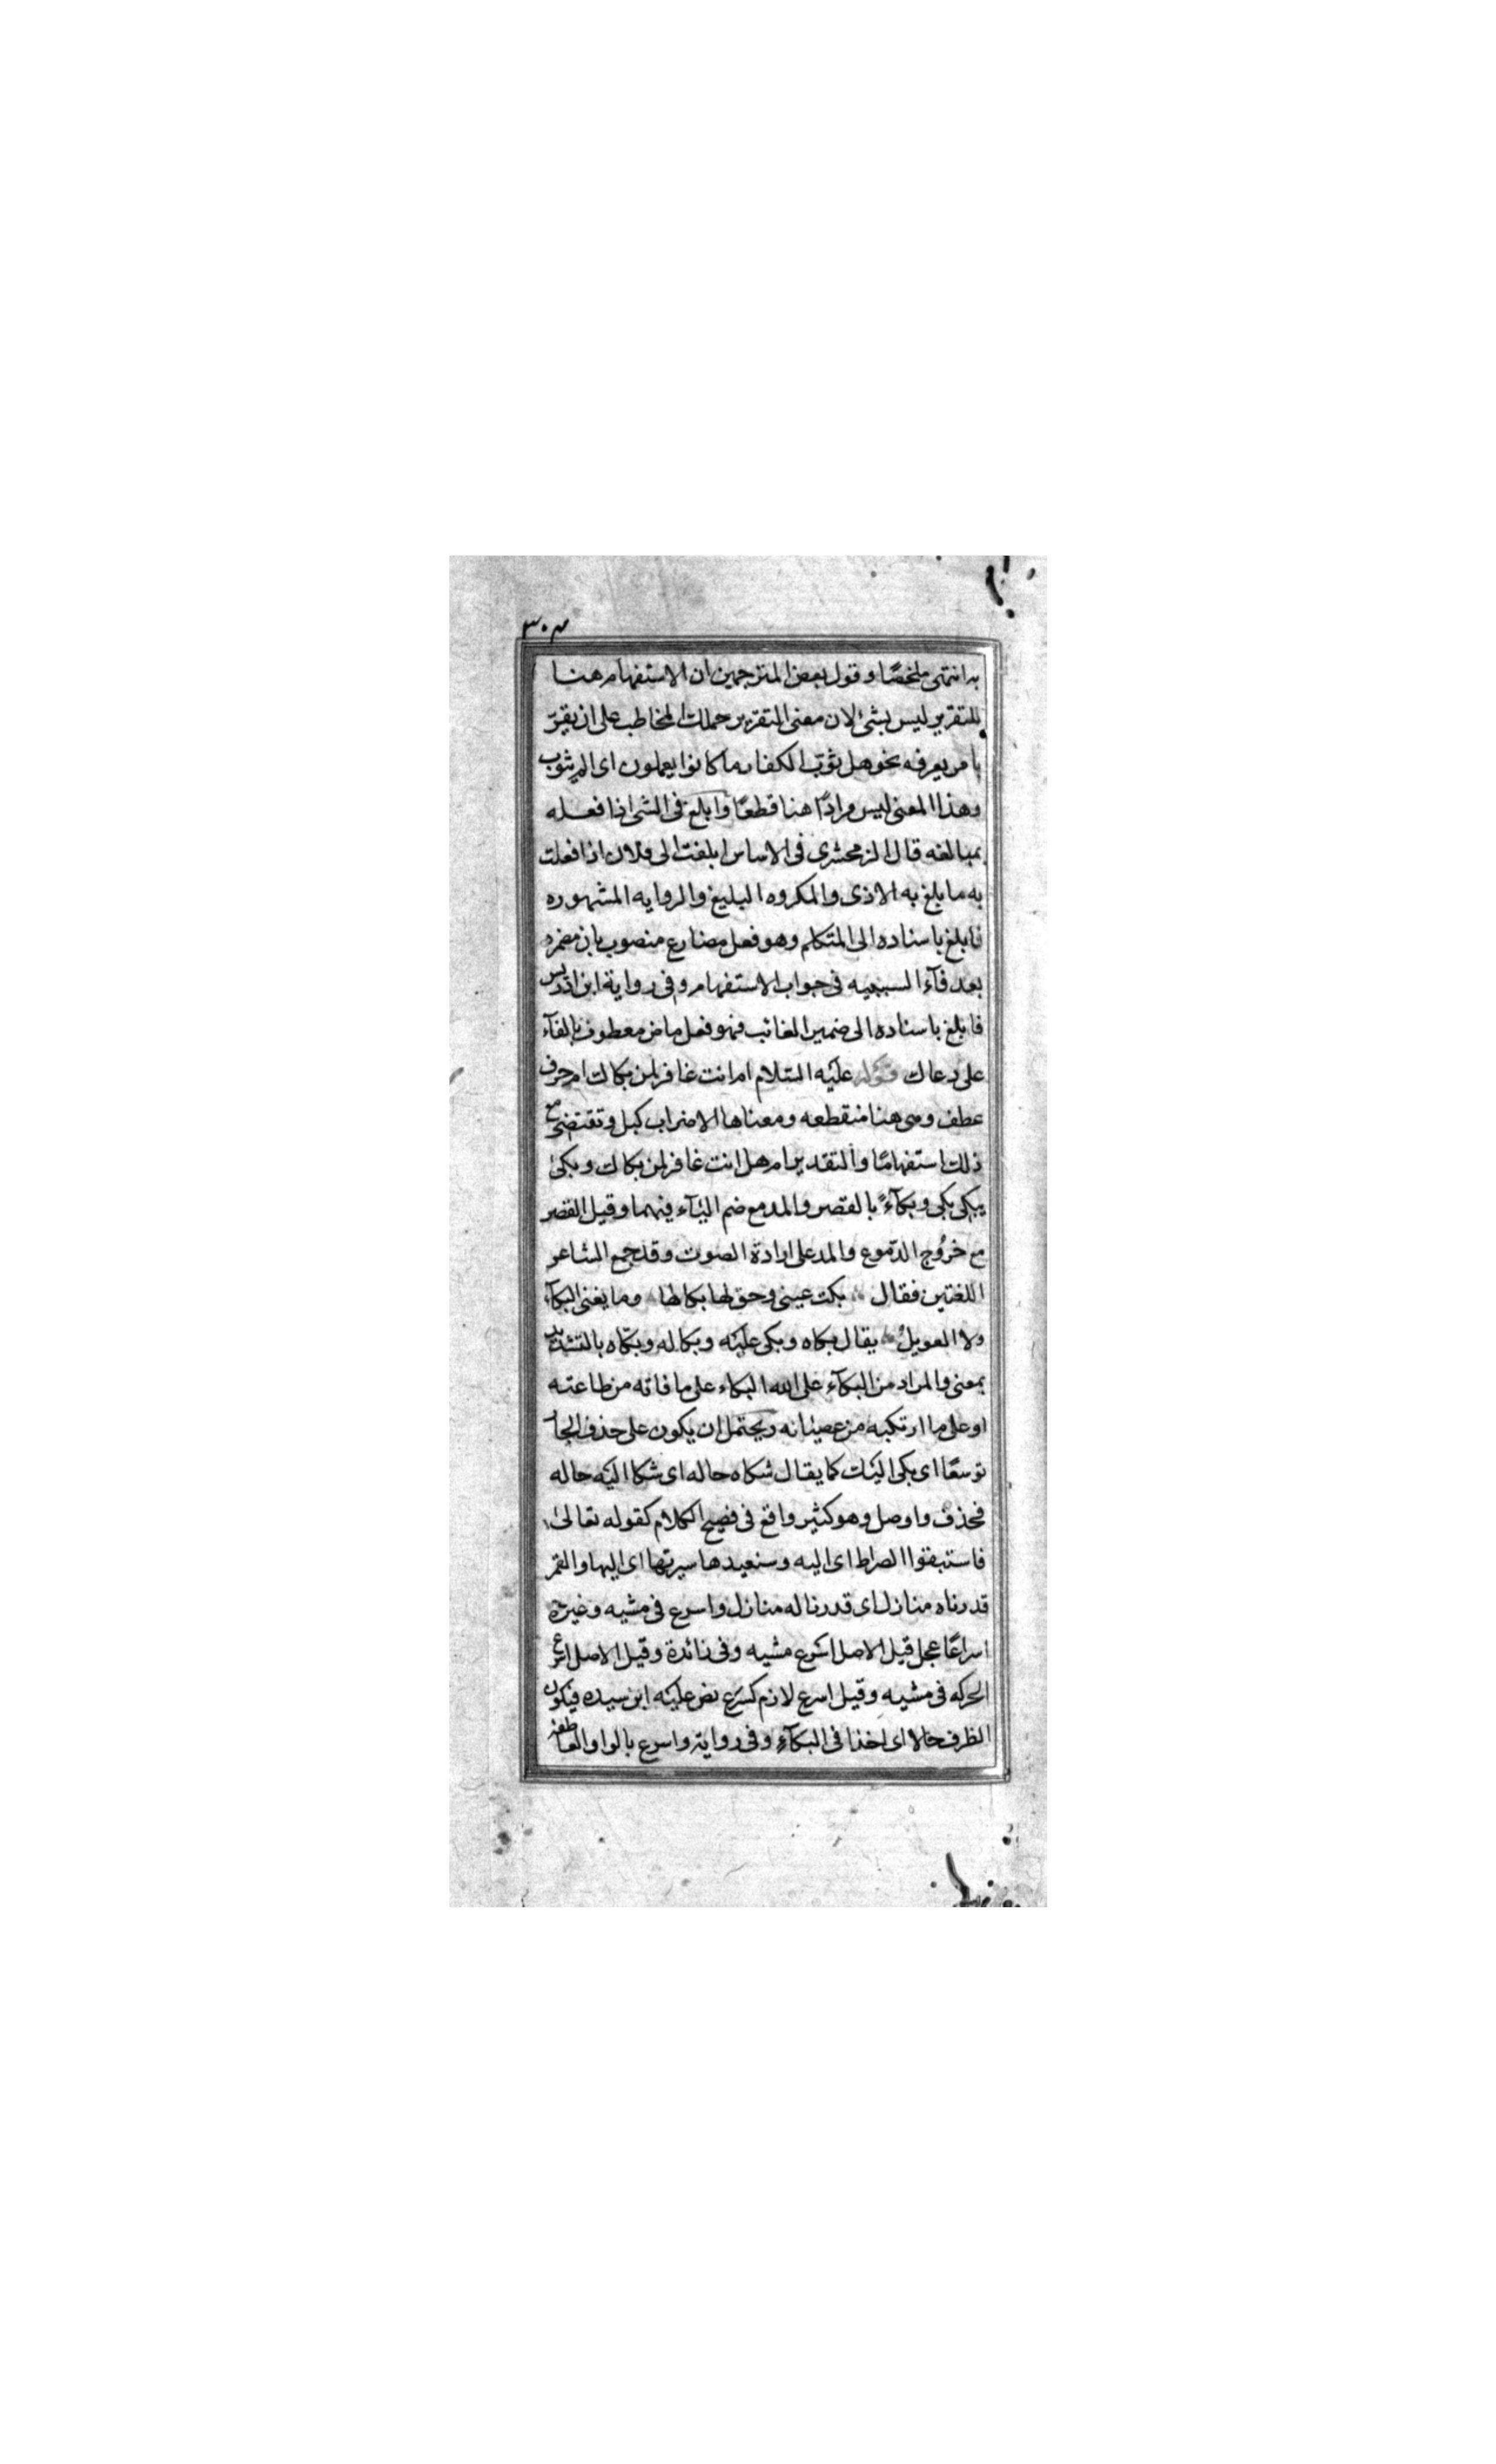 ٣٠٣
به انتهى ملخصًا و قول بعض المترجمين ان الاستفهام هنا
للتقرير ليس بشئ لان معنى التقرير حملك المخاطب على ان يقرّ
بامر يعرفه نحو هل ثوّب الكفار ما كانوا يعملون اى الم يثوب
وهذا المعنى ليس مرادًا هنا قطعًا وابلغ فى الشى اذا فعله
بمبالغه قال الزمخشرى فى الاساس ابلغت الى فلان اذا فعلت
به ما بلغ به الاذى والمكروه البليغ والروايه المشهوره
فابلغ باسناده الى المتكلم وهو فعل مضارع منصوب بان مضمره
بعد فآء السببيه فى جواب الاستفهام وفى رواية ابن ادريس
فابلغ باسناده الى ضمير الغائب فهو فعل ماض معطوف بالفآء
على دعاك قوله عليه السّلام ام انت غافر لمن بكاك ام حرف
عطف وهى هنا منقطعه ومعناها الاضراب كبل وتقتضى مع
ذلك استفهامًا والتقدير ام هل انت غافر لمن بكاك وبكى
يبكى بكى وبكآءً بالقصر والمد مع ضم اليآء فيهما وقيل القصر
مع خروُج الدّموع والمد على ارادة الصوت وقد جمع الشاعر
اللغتين فقال بكت عينى وحق لها بكالها وما يغنى البكآء
ولا العويلُ يقال بكاه وبكى عليه وبكا له وبكّاه بالتشديد
بمعنى والمراد من البكآء على الله البكاء على ما فاته من طاعته
او على ما ارتكبه من عصيانه ويحتمل ان يكون على حذف الجار
توسعًا اى بكى اليك كما يقال شكاه حاله اى شكا اليه حاله
فحذف واوصل وهو كثير واقع فى فصيح الكلام كقوله تعالى
فاستبقوا الصراط اى اليه وسنعيدها سيرتها اى اليها والقمر
قدرناه منازل اى قدرنا له منازل واسرع فى مشيه وغيره
اسراعًا عجل قيل الاصل اسرع مشيه وفى زائدة وقيل الاصل اسرع
الحركه فى مشيه وقيل اسرع لازم كسرع نص عليه ابن سيده فيكون
الظرف حالا اى اخذا فى البكآء وفى رواية واسرع بالواو العاطفه